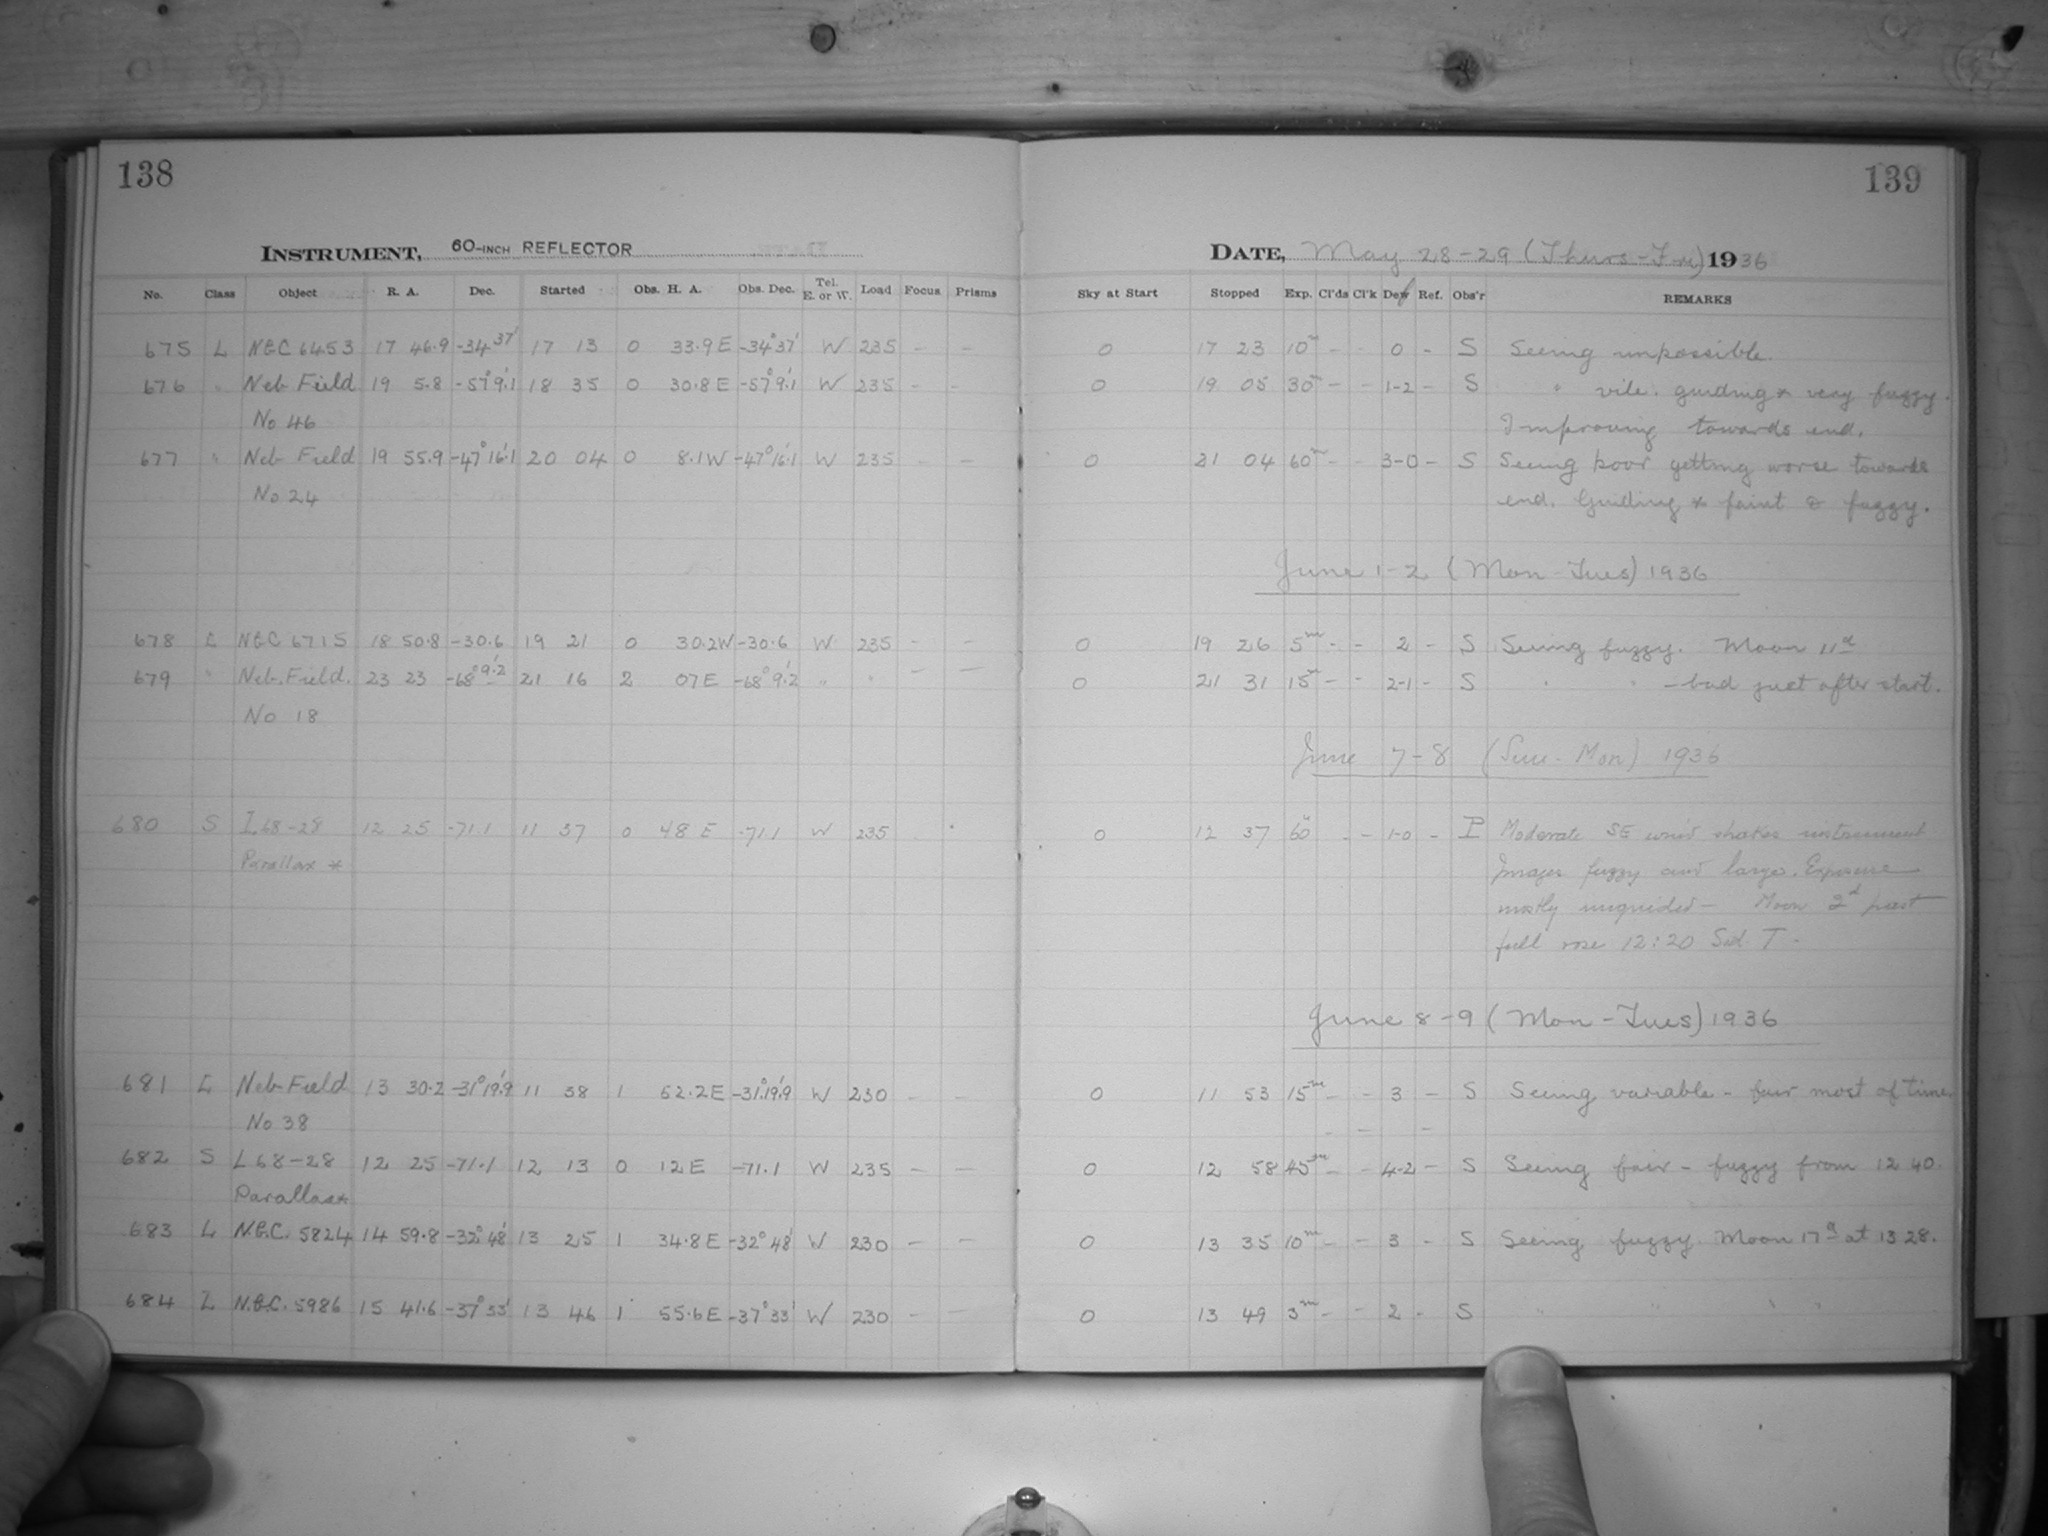 138
INSTRUMENT, 60-INCH REFLECTOR
No. Class Object R. A. Dec. Started Obs. H. A. Obs. Dec. Tel. E. or W. Load Focus Prisms
675 L NGC 6453 17 46.9 -34 37' 17 13 0 33.9 E -34°37' W 235 - -
676 " Neb Field 19 5.8 -57°9!1 18 35 0 30.8 E -57°9!1 W 235 - -
No 46
677 " Neb Field 19 55.9 -47°16!1 20 04 0 8.1 W -47°16!1 W 235 - -
No 24
678 L NGC 6715 18 50.8 -30.6 19 21 0 30.2 W -30.6 W 235 - -
679 " Neb. Field. 23 23 -68°9!2 21 16 2 07 E -68°9!2 " " - -
No 18
680 S L 68-28 12 25 -71.1 11 37 0 48 E -71.1 W 235
Parallax *
681 L Neb Field 13 30.2 -31°19!9 11 38 1 52.2 E -31°19!9 W 230 - -
No 38
682 S L 68-28 12 25 -71.1 12 13 0 12 E -71.1 W 235 - -
Parallax *
683 L N.G.C. 5824 14 59.8 -32°48' 13 25 1 34.8 E -32°48' W 230 - -
684 L N.G.C. 5986 15 41.6 -37°33' 13 46 1 55.6 E -37°33' W 230 - -
139
DATE, May 28-29 (Thurs-Fri) 1936
Sky at Start Stopped Exp. Cl'ds Cl'k Dew Ref. Obs'r REMARKS
0 17 23 10m - - 0 - S Seeing impossible.
0 19 05 30m - - 1-2 - S " vile. guiding * very fuzzy.
Improving towards end.
0 21 04 60m - - 3-0 - S Seeing poor getting worse towards
end. Guiding * faint & fuzzy.
June 1-2 (Mon-Tues) 1936
0 19 26 5m - - 2 - S Seeing fuzzy. Moon 11d
0 21 31 15m - - 2-1 - S " " - bad just after start.
June 7-8 (Sun-Mon) 1936
0 12 37 60m - - 1-0 - P Moderate SE wind shakes instrument
Images fuzzy and large. Exposure
mostly unguided - Moon 2d past
full rose 12:20 Sid. T.
June 8-9 (Mon-Tues) 1936
0 11 53 15m - - 3 - S Seeing variable - fair most of time.
0 12 58 45m - - 4-2 - S Seeing fair - fuzzy from 12 40.
0 13 35 10m - - 3 - S Seeing fuzzy. Moon 17d at 13 28.
0 13 49 3m - - 2 - S " " " "